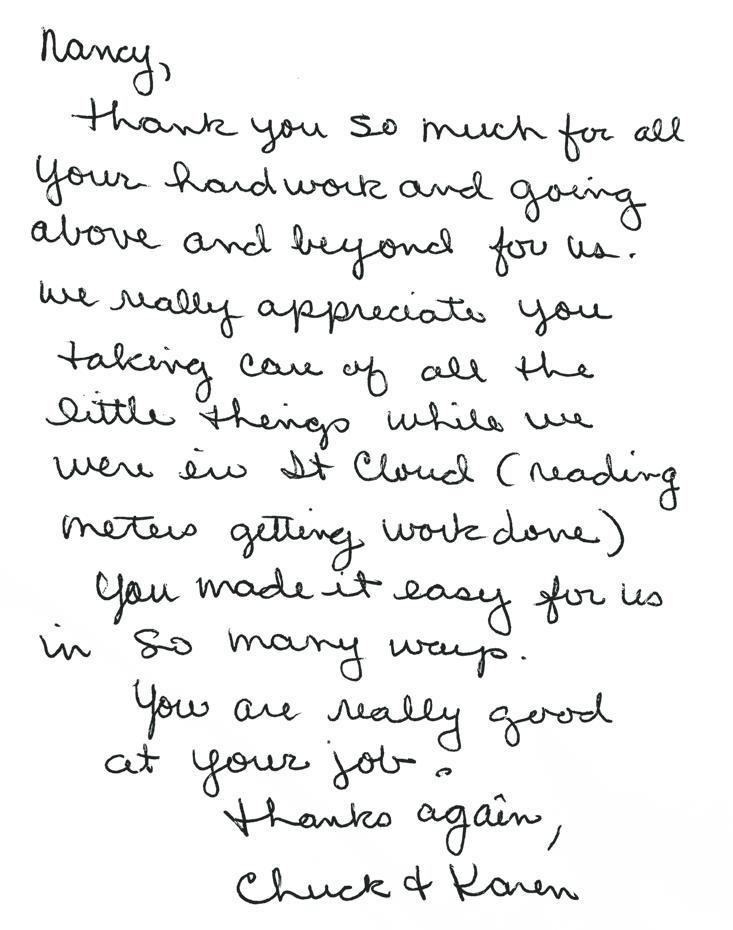 Nancy,
thank you so much for all
your hard work and going
above and beyond for us.
we really appreciate you
taking care of all the
little things while we
were in St Cloud (reading
meters getting work done)
you made it easy for us
in so many ways.
You are really good
at your job.
thanks again,
Chuck & Karen